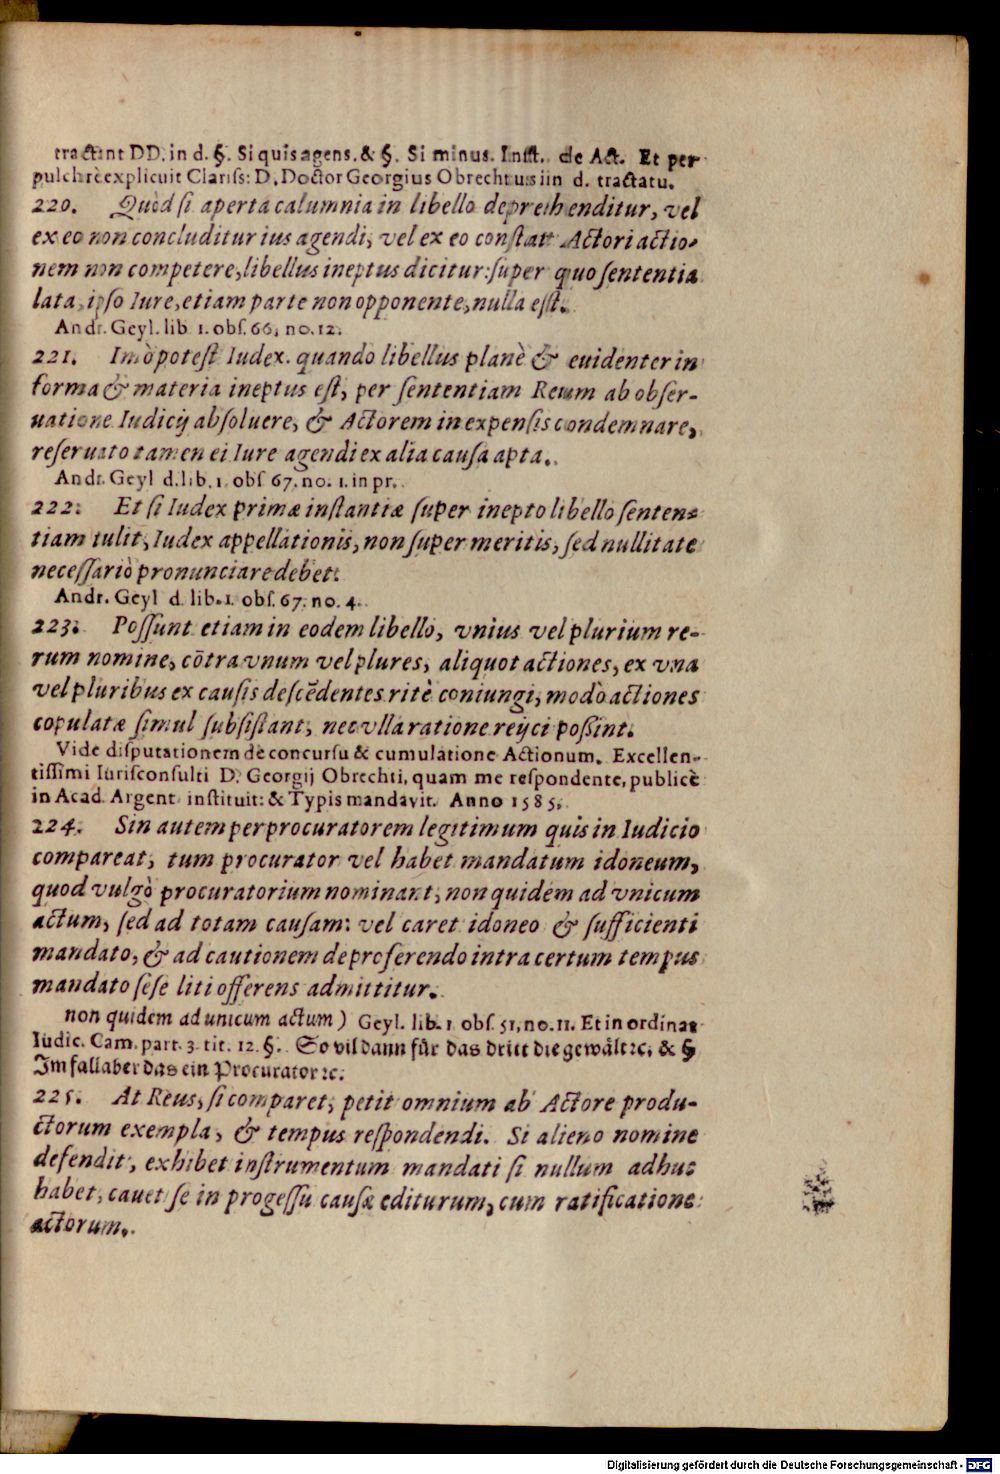 tractant DD. in d. §. Si quis agens. & §. Si minus. Inst. de Act. Et per
pulchrè explicuit Clariss: D. Doctor Georgius Obrechtus in d. tractatu.
220. Quòd si aperta calumnia in libello deprehenditur, vel
ex eo non concluditur ius agendi, vel ex eo constat Actori actio-
nem non competere, libellus ineptus dicitur: super quo sententia
lata, ipso Iure, etiam parte non opponente, nulla est.
Andr. Geyl. lib 1. obs. 66. no. 12.
221. Imò potest Iudex. quando libellus planè & euidenter in
forma & materia ineptus est, per sententiam Reum ab obser-
uatione Iudicij absoluere, & Actorem in expensis condemnare,
reseruato tamen ei Iure agendi ex alia causa apta.
Andr. Geyl d. lib. 1. obs 67. no. 1. in pr.
222. Et si Iudex primæ instantiæ super inepto libello senten-
tiam tulit, Iudex appellationis, non super meritis, sed nullitate
necessariò pronunciare debet.
Andr. Geyl d. lib. 1. obs. 67. no. 4.
223. Possunt etiam in eodem libello, vnius vel plurium re-
rum nomine, cõtra vnum vel plures, aliquot actiones, ex vna
vel pluribus ex causis descẽdentes ritè coniungi, modò actiones
copulatæ simul subsistant, nec vlla ratione reijci possint.
Vide disputationem de concursu & cumulatione Actionum. Excellen-
tissimi Iurisconsulti D. Georgij Obrechti, quam me respondente, publicè
in Acad. Argent instituit: & Typis mandavit. Anno 1585.
224. Sin autem per procuratorem legitimum quis in Iudicio
compareat, tum procurator vel habet mandatum idoneum,
quod vulgò procuratorium nominant, non quidem ad vnicum
actum, sed ad totam causam: vel caret idoneo & sufficienti
mandato, & ad cautionem de proferendo intra certum tempus
mandato sese liti offerens admittitur.
non quidem ad unicum actum) Geyl. lib. 1 obs. 51, no. 11. Et in ordinat
Iudic. Cam. part. 3. tit. 12. §. So vil dann für das dritt die gewält ꝛc. & §
Im fall aber das ein Procurator ꝛc.
225. At Reus, si comparet, petit omnium ab Actore produ-
ctorum exempla, & tempus respondendi. Si alieno nomine
defendit, exhibet instrumentum mandati si nullum adhuc
habet, cauet se in progessu causæ editurum, cum ratificatione
actorum.
Digitalisierung gefördert durch die Deutsche Forschungsgemeinschaft - DFG